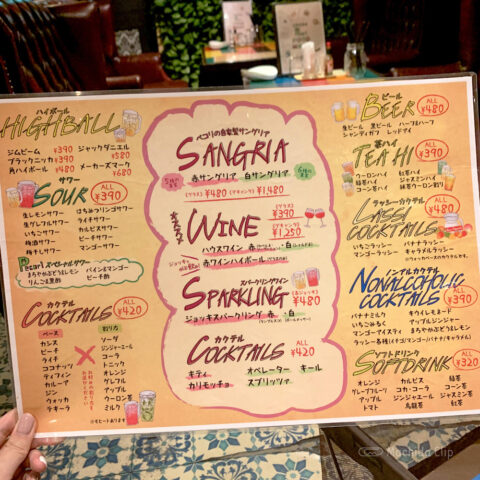 ハイボール
HIGHBALL
ジムビーム ¥390
ブラックニッカ ¥390
角ハイボール ¥480
ジャックダニエル ¥580
メーカーズマーク ¥680
サワー
SOUR ALL ¥390
生レモンサワー
生グレフルサワー
いちごサワー
梅酒サワー
梅干しサワー
はちみつリンゴサワー
ライチサワー
カルピスサワー
ピーチサワー
マンゴーサワー
まろやかぶどう&レモン
りんご&黒酢
パイン&マンゴー
ピーチ酢
カクテル
COCKTAILS ALL ¥420
ベース
カシス
ピーチ
ライチ
ココナッツ
ティフィン
カルーア
ジン
ウォッカ
テキーラ
割り方
ソーダ
ジンジャーエール
コーラ
トニック
オレンジ
グレフル
アップル
ウーロン
ミルク
ペコリの自家製サングリア
SANGRIA
赤サングリア 白サングリア
(グラス) ¥480 (デキャンタ) ¥1,480
オススメ
WINE
(グラス) ¥390
(デキャンタ) ¥1,250
ハウスワイン 赤・白
赤ワインハイボール
スパークリングワイン
SPARKLING ¥480
ジョッキスパークリング 赤・白
カクテル
COCKTAILS ALL ¥420
キティ オペレーター キール
カリモッチョ スプリッツァ
ビール
BEER ALL ¥480
生ビール 黒ビール ハーフ&ハーフ
シャンディガフ レッドアイ
茶ハイ
TEA HI ALL ¥390
ウーロンハイ
緑茶ハイ
コーン茶ハイ
紅茶ハイ
ジャスミンハイ
緑茶ウーロン割り
ラッシーカクテル
LASSI COCKTAILS ALL ¥480
いちごラッシー
マンゴーラッシー
バナナラッシー
キャラメルラッシー
ノンアルカクテル
NONALCOHOLIC COCKTAILS ALL ¥390
バナナミルク
いちごみるく
マンゴーアイスティ
キウイレモネード
アップルジンジャー
まろやかぶどう&レモン
ラッシー各種(イチゴ/マンゴー/バナナ/キャラメル)
ソフトドリンク
SOFTDRINK ALL ¥320
オレンジ
グレープフルーツ
アップル
トマト
カルピス
コカ・コーラ
ジンジャエール
烏龍茶
緑茶
コーン茶
ジャスミン茶
紅茶
Machida Clip